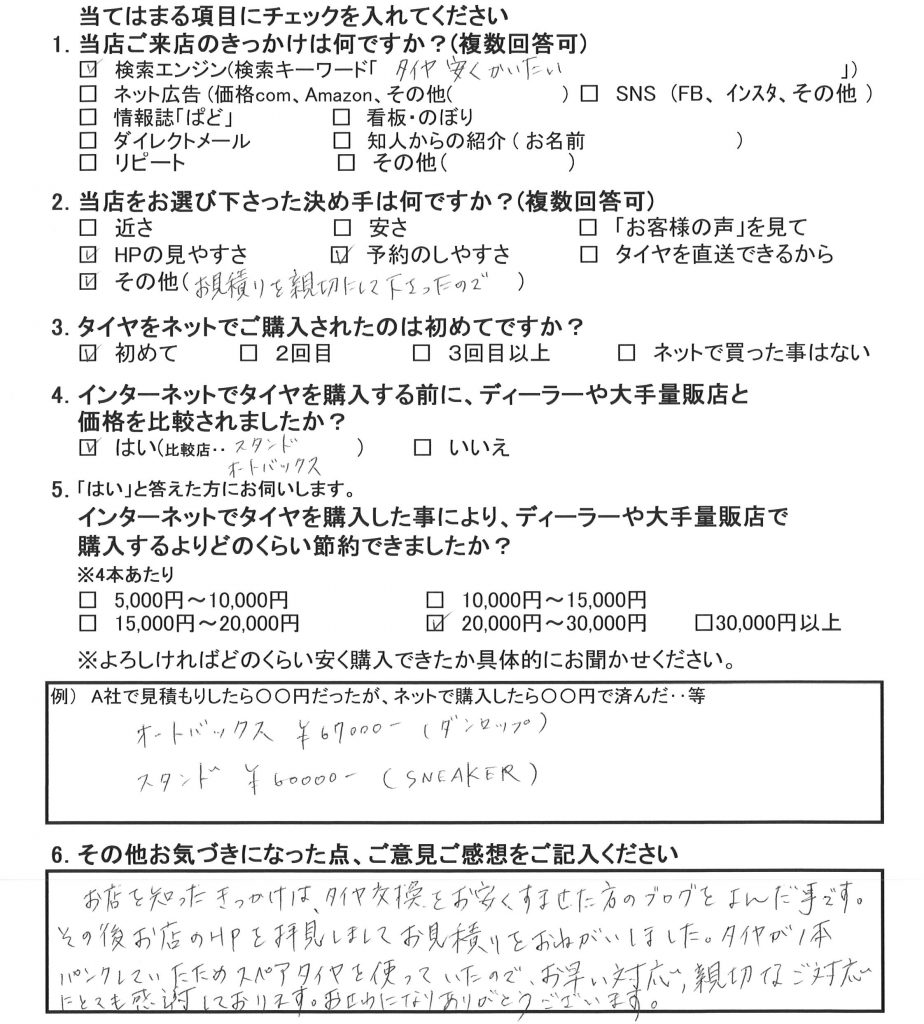 当てはまる項目にチェックを入れてください
1. 当店ご来店のきっかけは何ですか?(複数回答可)
☑ 検索エンジン(検索キーワード「 タイヤ 安くかいたい 」)
□ ネット広告(価格com、Amazon、その他( ) □ SNS (FB、インスタ、その他 )
□ 情報誌「ぱど」 □ 看板・のぼり
□ ダイレクトメール □ 知人からの紹介( お名前 )
□ リピート □ その他( )
2. 当店をお選び下さった決め手は何ですか?(複数回答可)
□ 近さ □ 安さ □ 「お客様の声」を見て
☑ HPの見やすさ ☑ 予約のしやすさ □ タイヤを直送できるから
☑ その他( お見積りを親切にして下さったので )
3. タイヤをネットでご購入されたのは初めてですか?
☑ 初めて □ 2回目 □ 3回目以上 □ ネットで買った事はない
4. インターネットでタイヤを購入する前に、ディーラーや大手量販店と
価格を比較されましたか?
☑ はい(比較店‥ スタンド ) □ いいえ
オートバックス
5. 「はい」と答えた方にお伺いします。
インターネットでタイヤを購入した事により、ディーラーや大手量販店で
購入するよりどのくらい節約できましたか?
※4本あたり
□ 5,000円~10,000円 □ 10,000円~15,000円
□ 15,000円~20,000円 ☑ 20,000円~30,000円 □30,000円以上
※よろしければどのくらい安く購入できたか具体的にお聞かせください。
例) A社で見積もりしたら〇〇円だったが、ネットで購入したら〇〇円で済んだ‥等
オートバックス ¥67000- (ダンロップ)
スタンド ¥60000- (SNEAKER)
6. その他お気づきになった点、ご意見ご感想をご記入ください
お店を知ったきっかけは、タイヤ交換をお安くすませた方のブログをよんだ事です。
その後お店のHPを拝見しましてお見積りをおねがいしました。タイヤが1本
パンクしていたためスペアタイヤを使っていたので、お早い対応、親切なご対応
にとても感謝しております。お世わになりありがとうございます。